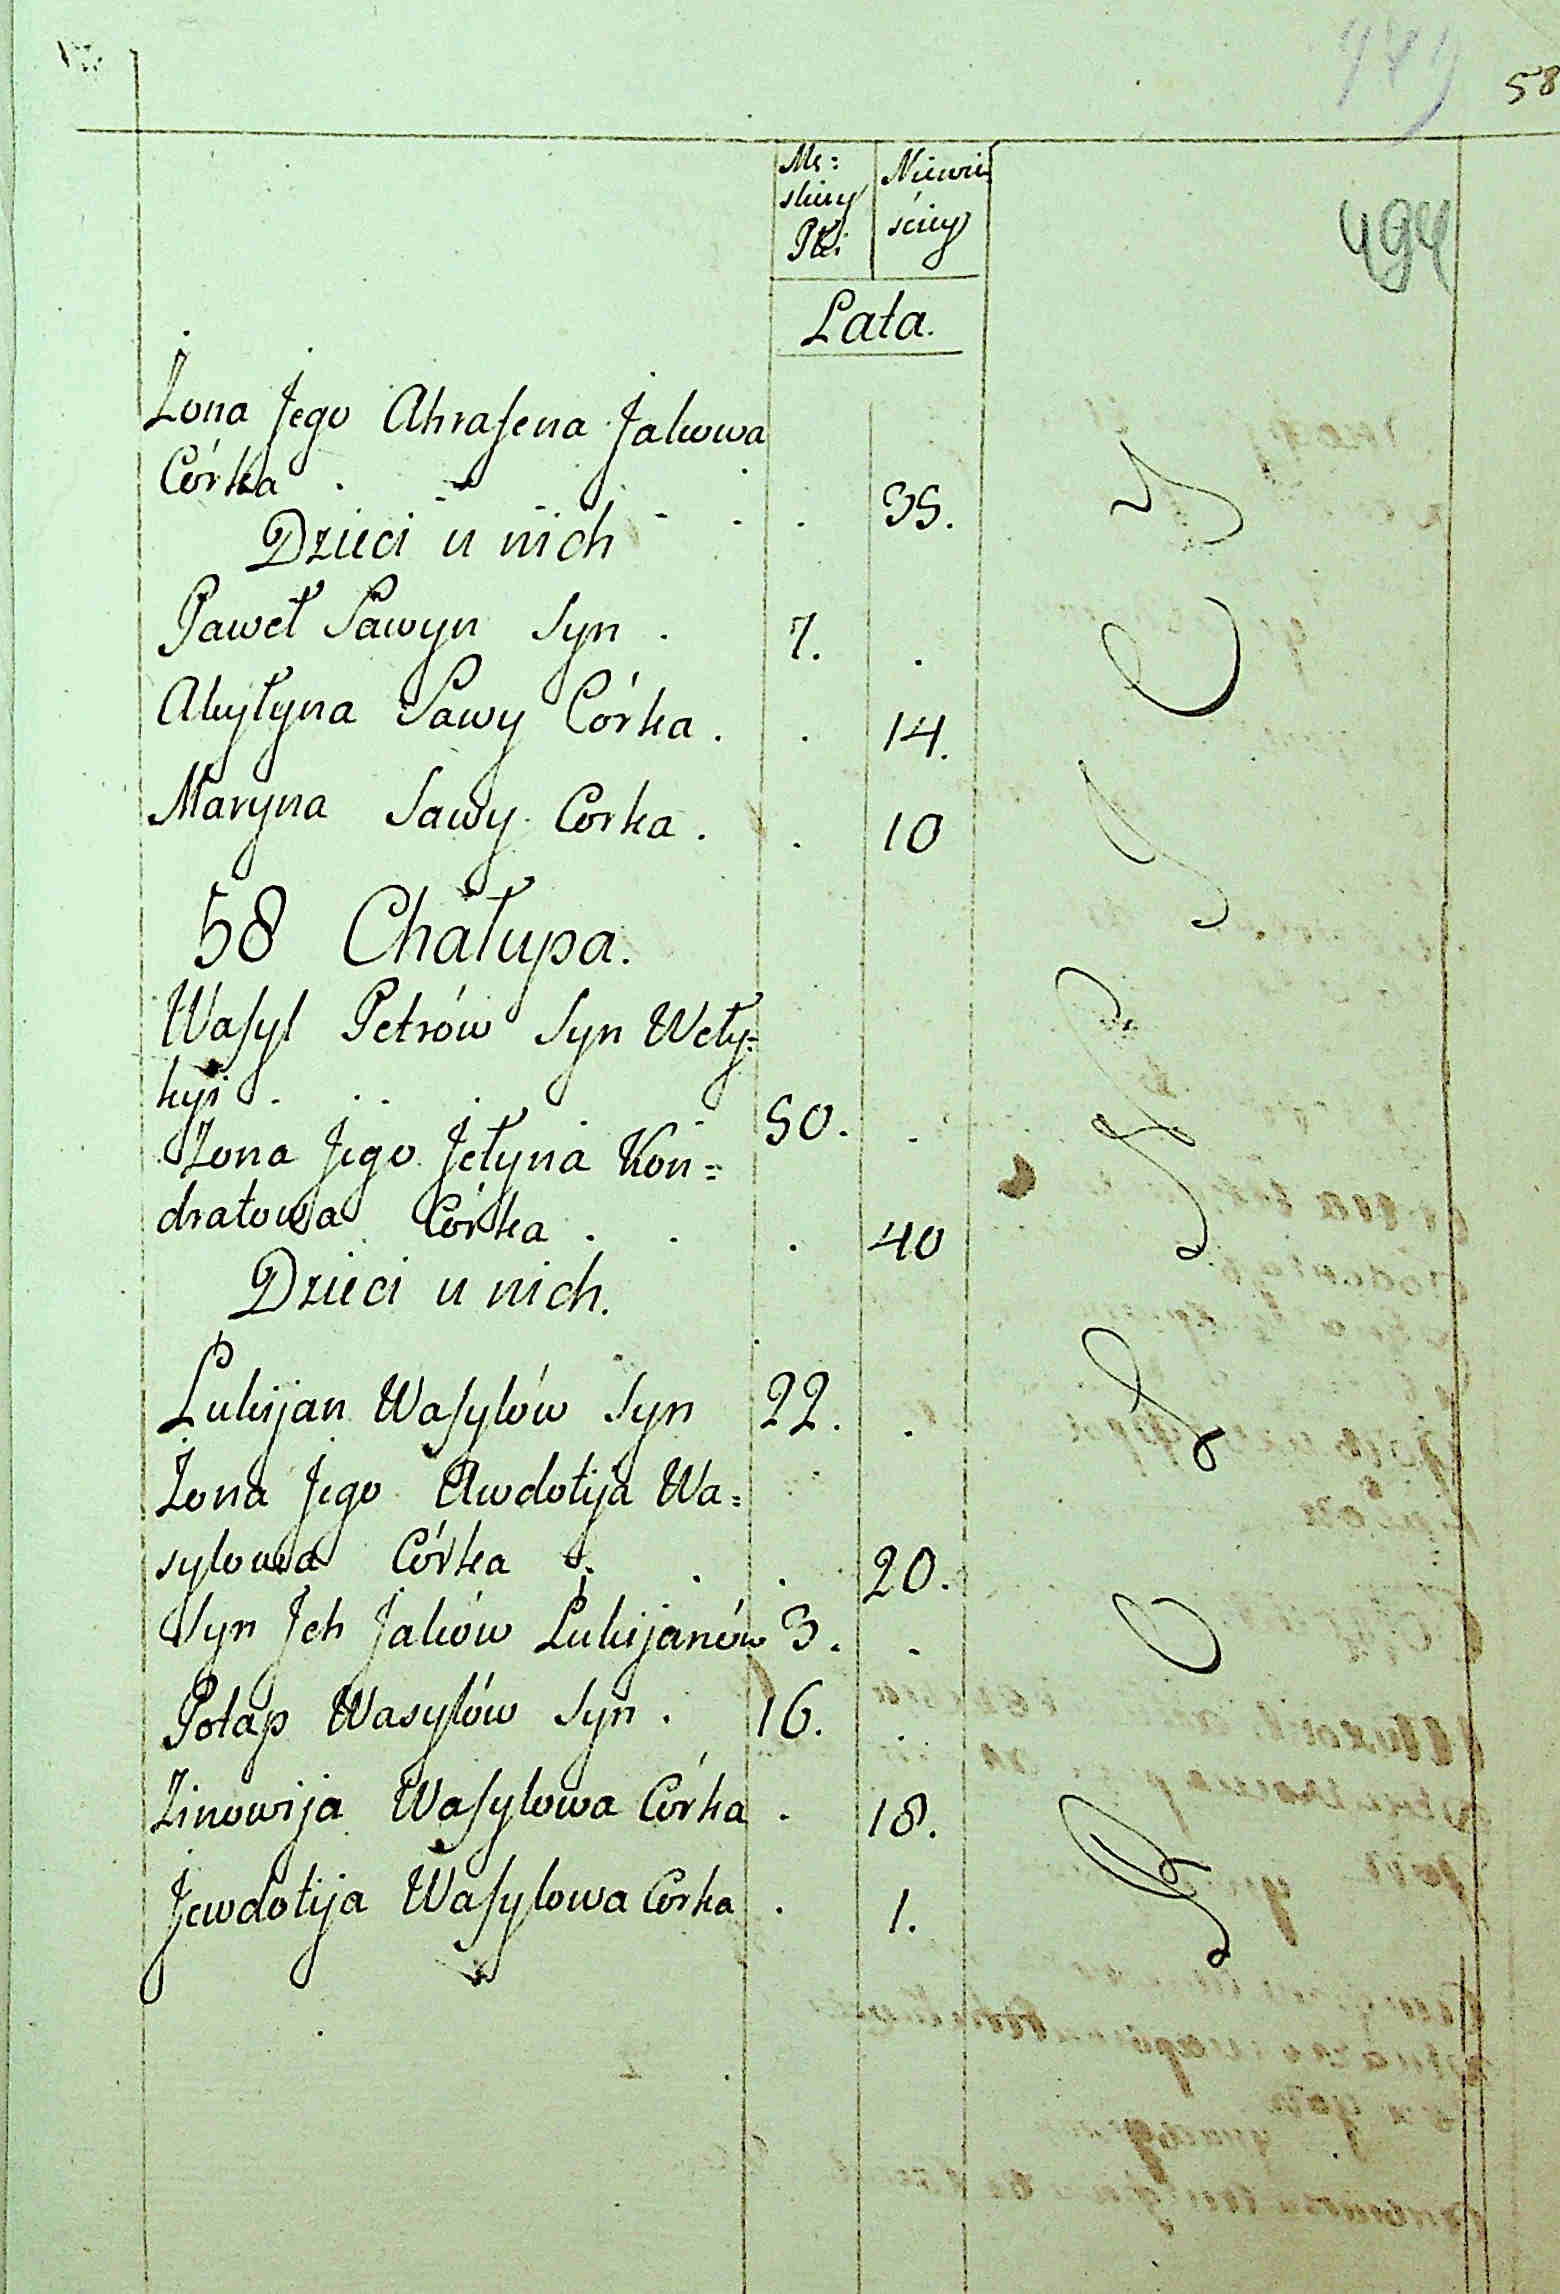 58
494
Mę:
skiey
Płci
Niewie
ściey
Lata.
Żona Jego Ahrafena Jakowa
Córka . . . . . . 35.
Dzieci u nich
Paweł Sawyn Syn . 7. .
Akyłyna Sawy Córka . . 14.
Maryna Sawy Corka . . 10
58 Chałupa.
Wasyl Petrów Syn Weły=
kyi . . . . . 50. .
Żona Jego Jełyna Kon=
dratowa Córka . . . 40
Dzieci u nich.
Łukijan Wasylów Syn 22. .
Żona Jego Awdotija Wa=
sylowa Córka . . . 20.
Syn Jch Jaków Łukijanów 3. .
Potap Wasylów Syn . 16. .
Zinowija Wasylowa Córka . 18.
Jewdotija Wasylowa Corka . 1.